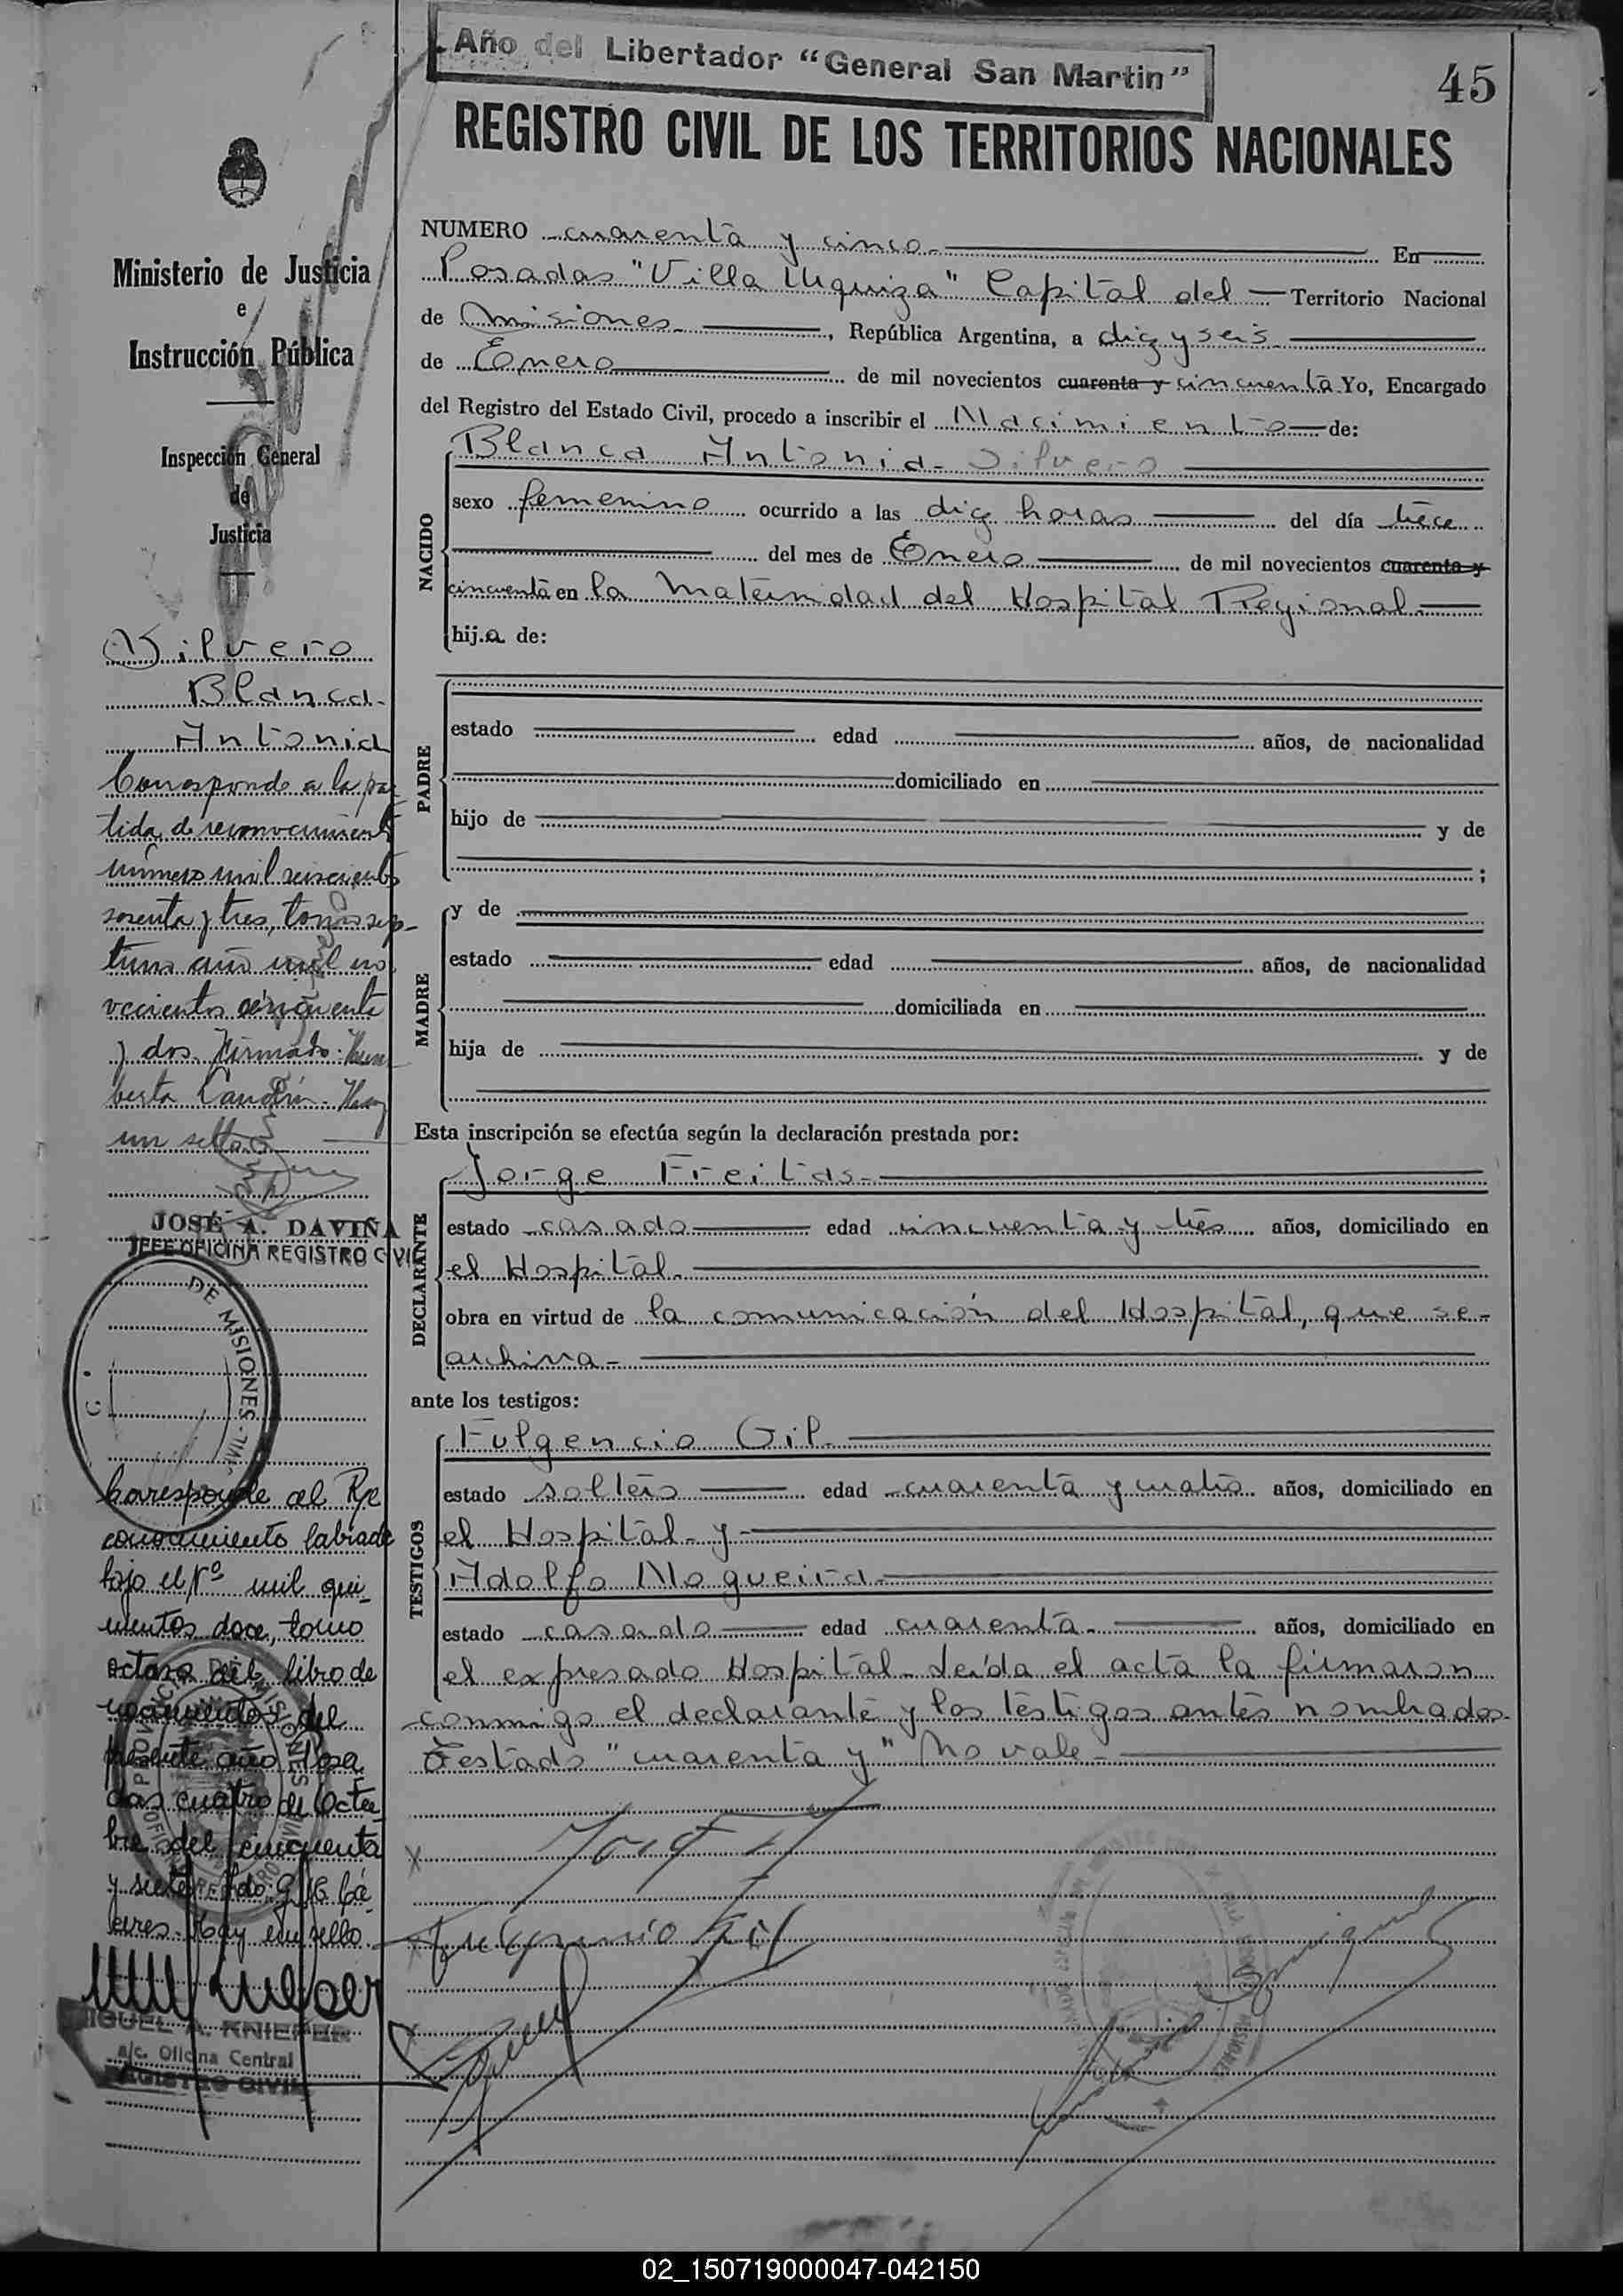 Año del Libertador "General San Martin"
45
REGISTRO CIVIL DE LOS TERRITORIOS NACIONALES
Ministerio de Justicia
e
Instrucción Pública
Inspección General
de
Justicia
Silvero
Blanca
Antonia
Corresponde a la par
tida de reconocimiento
número mil seiscientos
sesenta y tres, tomo sep-
timo año mil no
vecientos cincuenta
y dos. Firmado: Hum
berta Hay
un sello
JOSÉ A. DAVIÑA
JEFE OFICINA REGISTRO CIVIL
DE MISIONES
Corresponde al Re
conocimiento labrado
bajo el Nº mil qui-
nientos doce, tomo
octavo del libro de
nacimientos del
presente año Posa
das cuatro de Octu-
bre del cincuenta
y siete Fdo. G. Cá
ceres. Hay un sello.
MIGUEL A. KNIEPER
a/c. Oficina Central
REGISTRO CIVIL
NUMERO cuarenta y cinco. En
Posadas "Villa Urquiza" Capital del Territorio Nacional
de Misiones, República Argentina, a diez y seis
de Enero de mil novecientos cuarenta y cincuenta Yo, Encargado
del Registro del Estado Civil, procedo a inscribir el Nacimiento de:
NACIDO
Blanca Antonia Silvero
sexo femenino ocurrido a las diez horas del día trece
del mes de Enero de mil novecientos cuarenta y
cincuenta en la Maternidad del Hospital Regional
hija de:
PADRE
estado edad años, de nacionalidad
domiciliado en
hijo de y de
;
MADRE
y de
estado edad años, de nacionalidad
domiciliada en
hija de y de
Esta inscripción se efectúa según la declaración prestada por:
DECLARANTE
Jorge Freitas
estado casado edad cincuenta y tres años, domiciliado en
el Hospital.
obra en virtud de la comunicación del Hospital, que se
archiva
ante los testigos:
TESTIGOS
Fulgencio Gil
estado soltero edad cuarenta y cuatro años, domiciliado en
el Hospital y
Adolfo Nogueira
estado casado edad cuarenta años, domiciliado en
el expresado Hospital. Leída el acta la firmaron
conmigo el declarante y los testigos antes nombrados.
Testado "cuarenta y" No vale
Fulgencio Gil
02_150719000047-042150